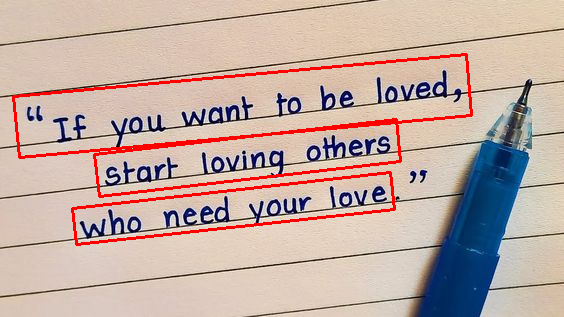 “If you want to be loved,
start loving others
who need your love.”